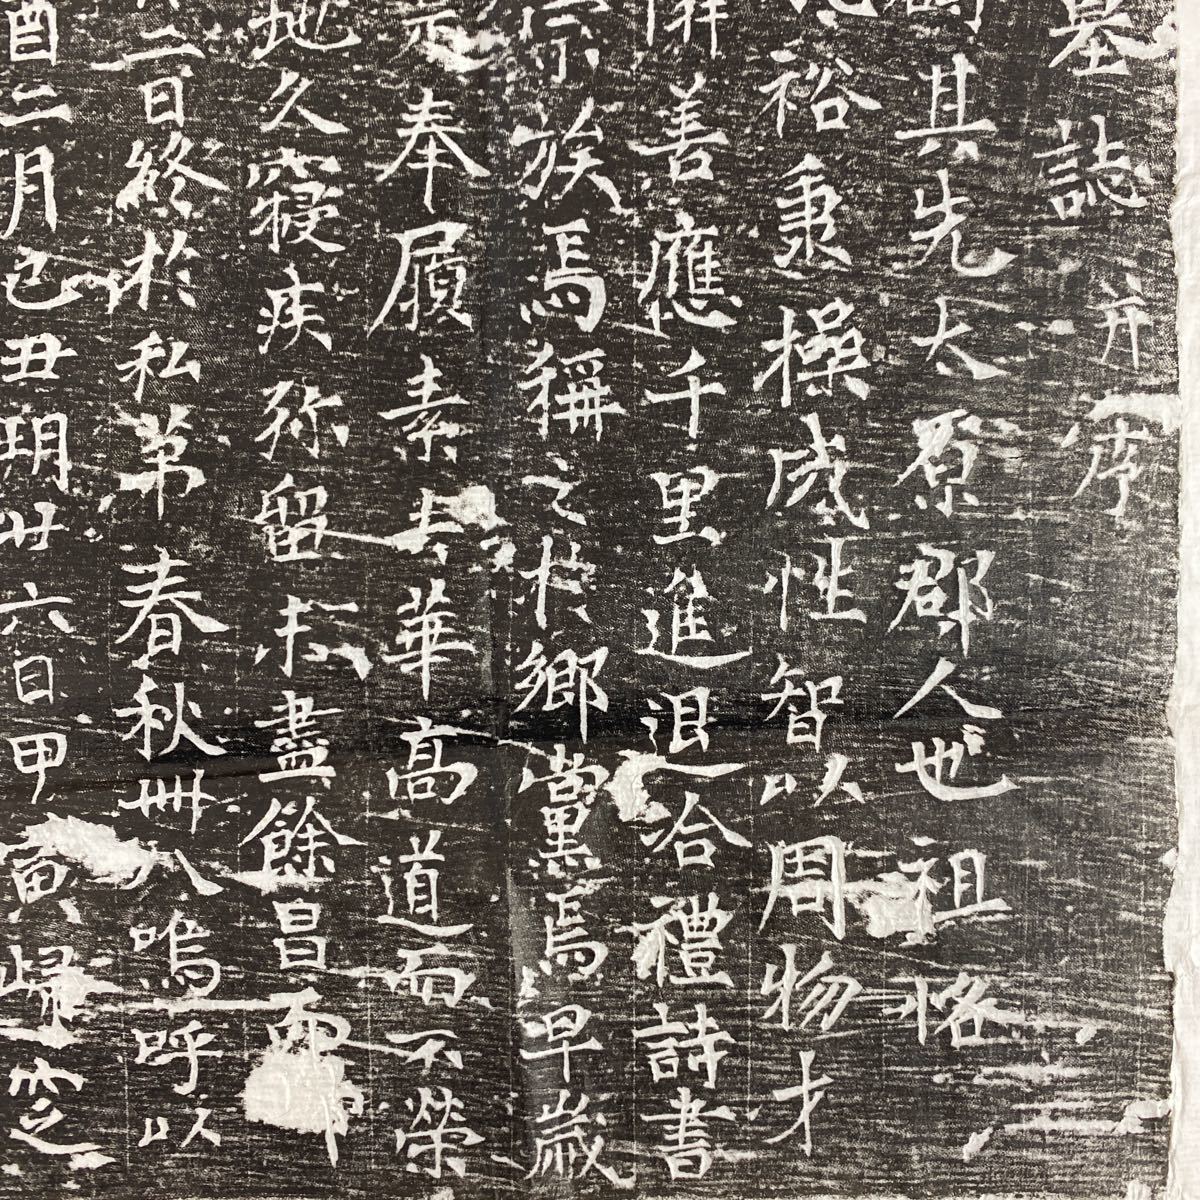 墓誌并序
其先太原郡人也祖恪
裕秉操成性智以周物才
善應千里進退合禮詩書
族焉稱之於鄉黨焉早歲
奉履素去華高道而不榮
地久寢疾弥留未盡餘昌
二日終於私第春秋卌八嗚呼以
酉二月己丑朔廿六日甲寅歸窆